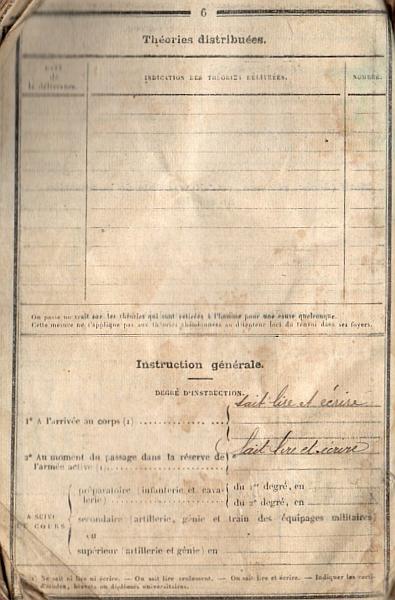 6
Théories distribuées.
DATE
de
la délivrance.
INDICATION DES THÉORIES DÉLIVRÉES.
NOMBRE.
On passe un trait sur les théories qui sont retirées à l'homme pour une cause quelconque.
Cette mesure ne s'applique pas aux théories abandonnées au détenteur lors du renvoi dans ses foyers.
Instruction générale.
DEGRÉ D'INSTRUCTION.
1° A l'arrivée au corps (1)
sait lire et écrire
2° Au moment du passage dans la réserve de
l'armée active (1)
Sait lire et écrire
A SUIVI
LE COURS
préparatoire (infanterie et cava-
lerie)
du 1er degré, en
du 2e degré, en
secondaire (artillerie, génie et train des équipages militaires)
en
supérieur (artillerie et génie) en
(1) Ne sait ni lire ni écrire. — On sait lire seulement. — On sait lire et écrire. — Indiquer les certi-
ficats d'études, brevets ou diplômes universitaires.